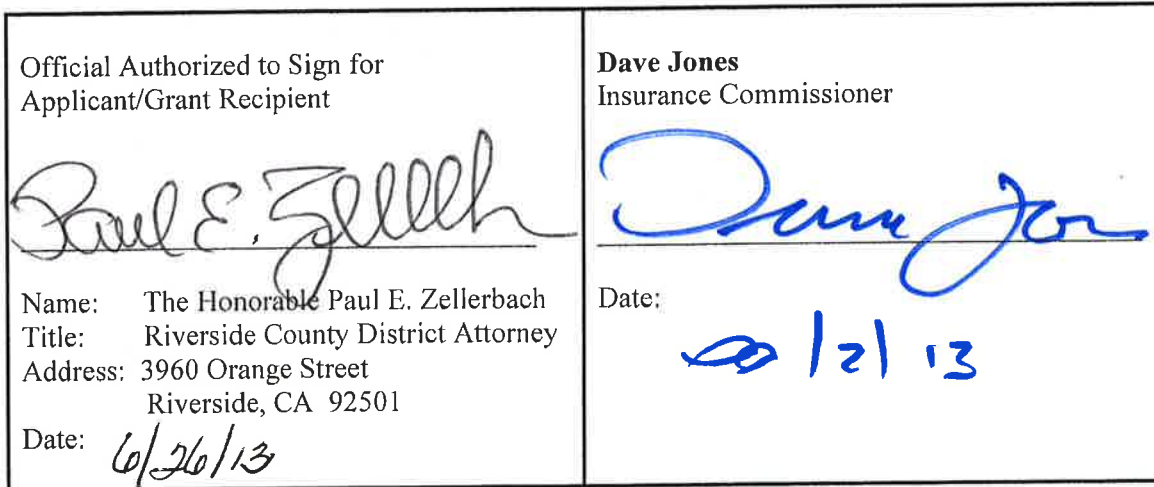 Official Authorized to Sign for
Applicant/Grant Recipient
Paul E. Zellerbach
Name: The Honorable Paul E. Zellerbach
Title: Riverside County District Attorney
Address: 3960 Orange Street
Riverside, CA 92501
Date: 6/26/13
Dave Jones
Insurance Commissioner
Dave Jones
Date:
/2/13